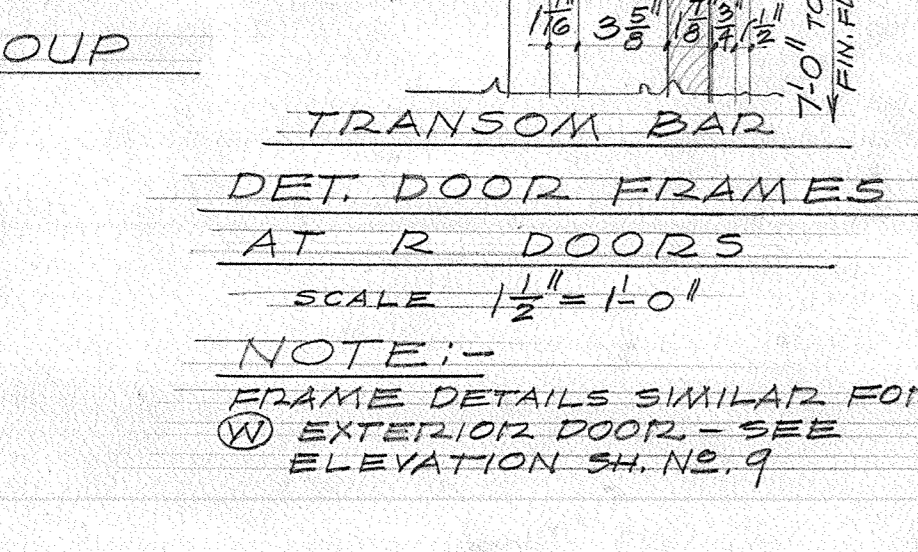 OUP
3 5/8" 1 7/8 3/4 1 1/2"
7'-0" TO
FIN. FL
TRANSOM BAR
DET. DOOR FRAMES
AT R DOORS
SCALE 1 1/2" = 1'-0"
NOTE:-
FRAME DETAILS SIMILAR FOR
W EXTERIOR DOOR - SEE
ELEVATION SH. NO. 9